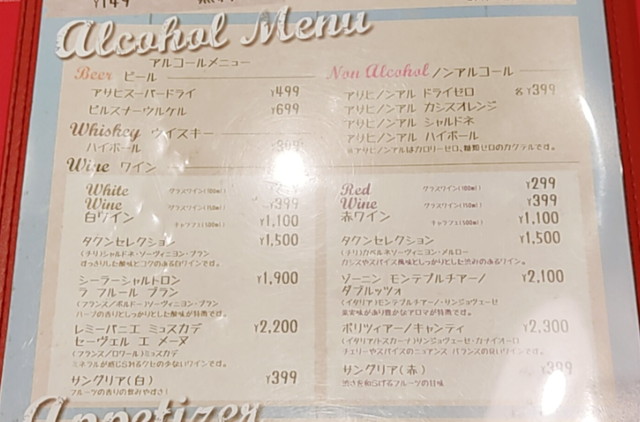 ¥149
Alcohol Menu
アルコールメニュー
Beer ビール
アサヒスーパードライ ¥499
ピルスナーウルケル ¥699
Whiskey ウイスキー
ハイボール ¥399
Non Alcohol ノンアルコール
アサヒノンアル ドライゼロ 各¥399
アサヒノンアル カシスオレンジ
アサヒノンアル シャルドネ
アサヒノンアル ハイボール
※アサヒノンアルはカロリーゼロ、糖類ゼロのカクテルです。
Wine ワイン
White グラスワイン(100ml)
Wine グラスワイン(150ml) ¥399
白ワイン カラフェ(500ml) ¥1,100
タクンセレクション ¥1,500
(チリ)シャルドネ・ソーヴィニヨン・ブラン
すっきりした酸味とコクのある白ワインです。
シーラーシャルトロン ¥1,900
ラ フルール ブラン
(フランス/ボルドー)ソーヴィニヨン・ブラン
ハーブの香りとしっかりした酸味が特徴です。
レミーパニエ ミュスカデ ¥2,200
セーヴェル エ メーヌ
(フランス/ロワール)ミュスカデ
ミネラルが感じられるクセの少ないワインです。
サングリア(白) ¥399
フルーツの香りの飲みやすさ!
Red グラスワイン(100ml) ¥299
Wine グラスワイン(150ml) ¥399
赤ワイン カラフェ(500ml) ¥1,100
タクンセレクション ¥1,500
(チリ)カベルネソーヴィニヨン・メルロー
カシスやスパイス風味としっかりとした渋みのあるワイン。
ゾーニン モンテプルチアーノ ¥2,100
ダブルッツォ
(イタリア)モンテプルチアーノ・サンジョヴェーゼ
果実味があり豊かなアロマが特徴です。
ポリツィアーノ キャンティ ¥2,300
(イタリア/トスカーナ)サンジョヴェーゼ・カナイオーロ
チェリーやスパイスのニュアンス バランスの良いワインです。
サングリア(赤) ¥399
渋さを和らげるフルーツの甘味
Appetizer